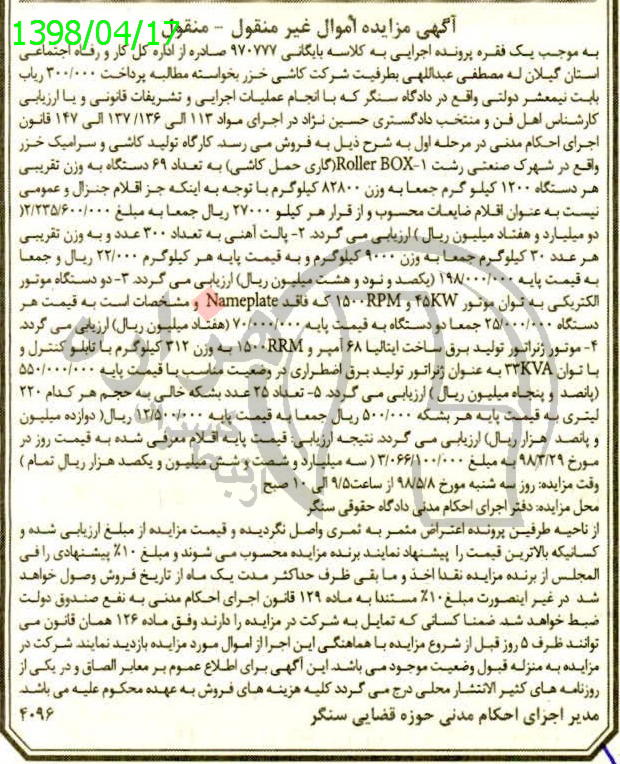 1398/04/17
آگهی مزایده اموال غیر منقول - منقول
به موجب یک فقره پرونده اجرایی به کلاسه بایگانی ۹۷۰۷۷۷ صادره از اداره کل کار و رفاه اجتماعی
استان گیلان له مصطفی عبداللهی بطرفیت شرکت کاشی خزر بخواسته مطالبه پرداخت ۳۰۰/۰۰۰ ریاب
بابت نیمعشر دولتی واقع در دادگاه سنگر که با انجام عملیات اجرایی و تشریفات قانونی و یا ارزیابی
کارشناس اهل فن و منتخب دادگستری حسین نژاد در اجرای مواد ۱۱۳ الی ۱۳۶/ ۱۳۷ الی ۱۴۷ قانون
اجرای احکام مدنی در مرحله اول به شرح ذیل به فروش می رسد. کارگاه تولید کاشی و سرامیک خزر
واقع در شهرک صنعتی رشت ۱-Roller BOX(گاری حمل کاشی) به تعداد ۶۹ دستگاه به وزن تقریبی
هر دستگاه ۱۲۰۰ کیلو گرم جمعا به وزن ۸۲۸۰۰ کیلوگرم با توجه به اینکه جز اقلام جنرال و عمومی
نیست به عنوان اقلام ضایعات محسوب و از قرار هر کیلو ۲۷۰۰۰ ریال جمعا به مبلغ ۲/۲۳۵/۶۰۰/۰۰۰(
دو میلیارد و هفتاد میلیون ریال ) ارزیابی می گردد. ۲- پالت آهنی به تعداد ۳۰۰ عدد و به وزن تقریبی
هر عدد ۳۰ کیلوگرم جمعا به وزن ۹۰۰۰ کیلوگرم و به قیمت پایه هر کیلوگرم ۲۲/۰۰۰ ریال و جمعا
به قیمت پایه ۱۹۸/۰۰۰/۰۰۰ (یکصد و نود و هشت میلیون ریال) ارزیابی می گردد. ۳- دو دستگاه موتور
الکتریکی به توان موتور ۴۵KW و ۱۵۰۰RPM که فاقد Nameplate و مشخصات است به قیمت هر
دستگاه ۲۵/۰۰۰/۰۰۰ جمعا دو دستگاه به قیمت پایه ۷۰/۰۰۰/۰۰۰ (هفتاد میلیون ریال) ارزیابی می گردد.
۴- موتور ژنراتور تولید برق ساخت ایتالیا ۶۸ آمپر و ۱۵۰۰RRM به وزن ۳۱۲ کیلوگرم با تابلو کنترل و
با توان ۳۳KVA به عنوان ژنراتور تولید برق اضطراری در وضعیت مناسب با قیمت پایه ۵۵۰/۰۰۰/۰۰۰
(پانصد و پنجاه میلیون ریال ) ارزیابی می گردد. ۵- تعداد ۲۵ عدد بشکه خالی به حجم هر کدام ۲۲۰
لیتری به قیمت پایه هر بشکه ۵۰۰/۰۰۰ ریال جمعا به قیمت پایه ۱۲/۵۰۰/۰۰۰ ریال( دوازده میلیون
و پانصد هزار ریال) ارزیابی می گردد. نتیجه ارزیابی: قیمت پایه اقلام معرفی شده به قیمت روز در
مورخ ۹۸/۳/۲۹ به مبلغ ۳/۰۶۶/۱۰۰/۰۰۰ ( سه میلیارد و شصت و شش میلیون و یکصد هزار ریال تمام )
وقت مزایده: روز سه شنبه مورخ ۹۸/۵/۸ از ساعت۹/۵ الی ۱۰ صبح
محل مزایده: دفتر اجرای احکام مدنی دادگاه حقوقی سنگر
از ناحیه طرفین پرونده اعتراض مثمر به ثمری واصل نگردیده و قیمت مزایده از مبلغ ارزیابی شده و
کسانیکه بالاترین قیمت را پیشنهاد نمایند برنده مزایده محسوب می شوند و مبلغ ۱۰٪ پیشنهادی را فی
المجلس از برنده مزایده نقدا اخذ و ما بقی ظرف حداکثر مدت یک ماه از تاریخ فروش وصول خواهد
شد در غیر اینصورت مبلغ۱۰٪ مستندا به ماده ۱۲۹ قانون اجرای احکام مدنی به نفع صندوق دولت
ضبط خواهد شد. ضمنا کسانی که تمایل به شرکت در مزایده را دارند وفق ماده ۱۲۶ همان قانون می
توانند ظرف ۵ روز قبل از شروع مزایده با هماهنگی این اجرا از اموال مورد مزایده بازدید نمایند. شرکت در
مزایده به منزله قبول وضعیت موجود می باشد. این آگهی برای اطلاع عموم بر معابر الصاق و در یکی از
روزنامه های کثیر الانتشار محلی درج می گردد کلیه هزینه های فروش به عهده محکوم علیه می باشد.
مدیر اجرای احکام مدنی حوزه قضایی سنگر
۴۰۹۶